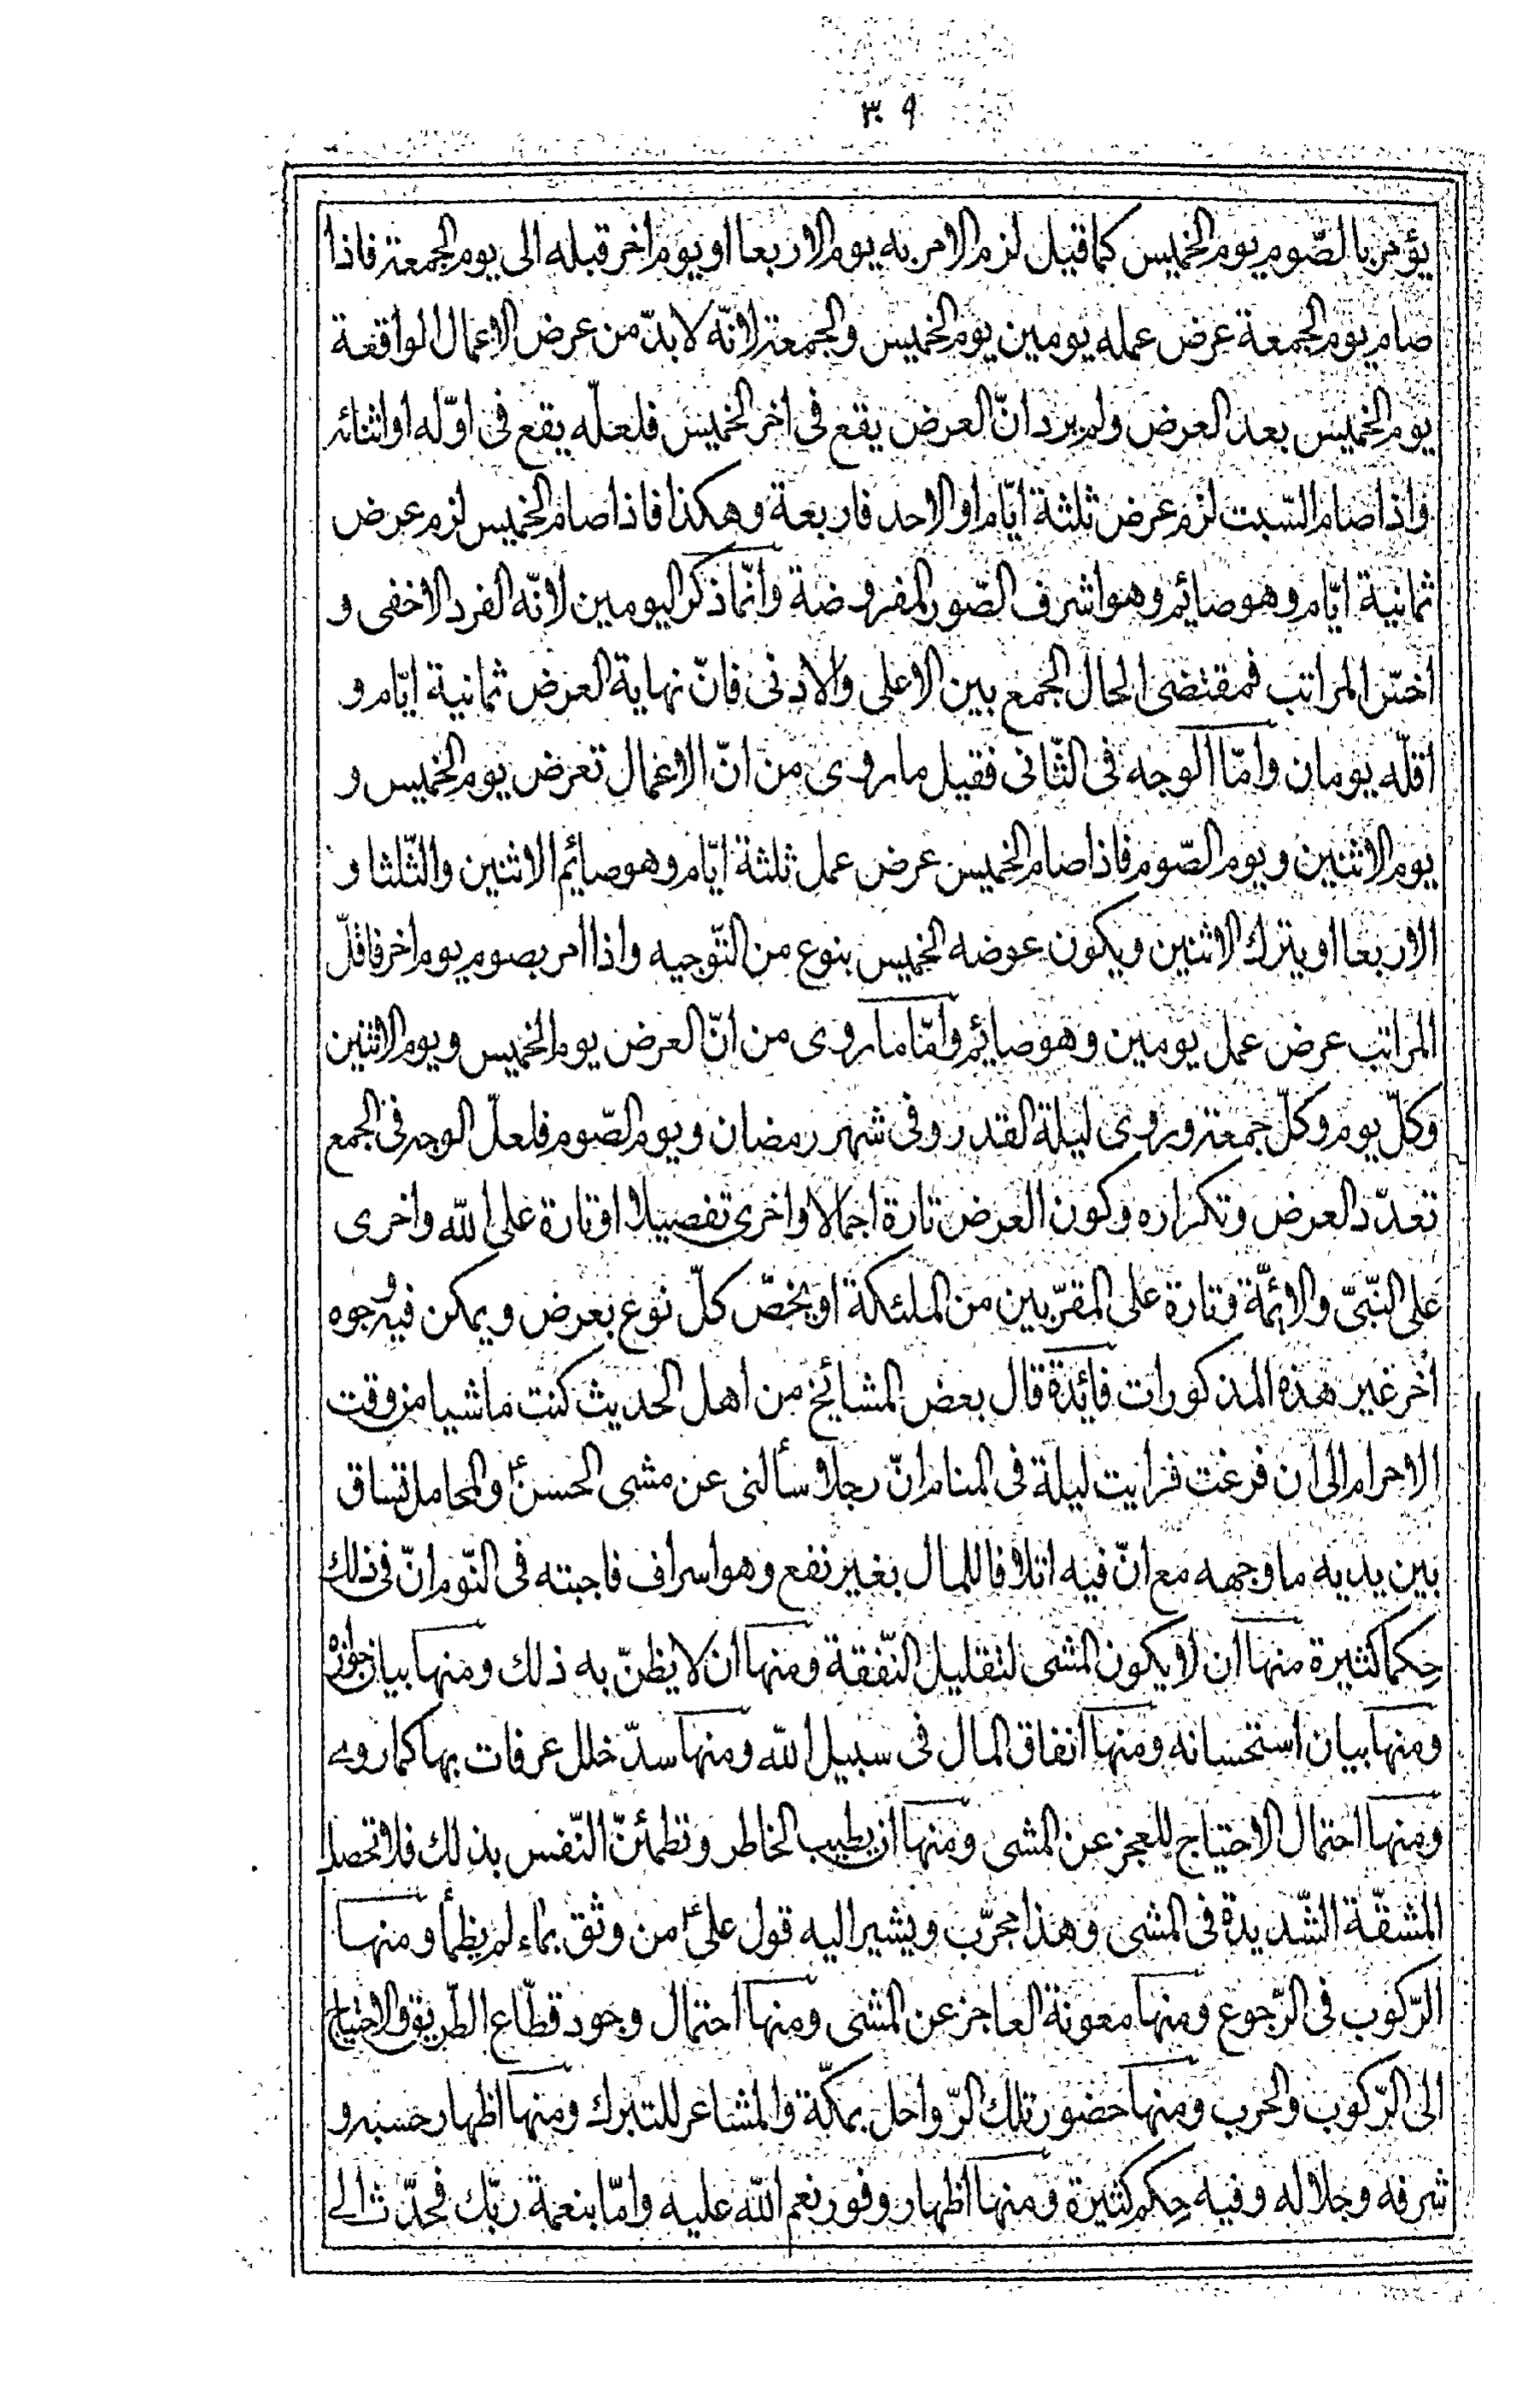 ٣٠٩
يؤمر بالصّوم يوم الخميس كما قيل لزم الامر به يوم الاربعا او يوم اخر قبله الى يوم الجمعة فاذا
صام يوم الجمعة عرض عمله يومين يوم الخميس والجمعة لانّه لا بدّ من عرض الاعمال الواقعة
يوم الخميس بعد العرض ولم يرد انّ العرض يقع فى اخر الخميس فلعلّه يقع فى اوّله او اثنائه
واذا صام السّبت لزم عرض ثلثة ايّام او الاحد فاربعة وهكذا فاذا صام الخميس لزم عرض
ثمانية ايّام وهو صائم وهو اشرف الصّور المفروضة وانّما ذكر اليومين لانّه الفرد الاخفى و
اخسّ المراتب فمقتضى الحال الجمع بين الاعلى والادنى فانّ نهاية العرض ثمانية ايّام و
اقلّه يومان وامّا الوجه فى الثّانى فقيل ما روى من انّ الاعمال تعرض يوم الخميس و
يوم الاثنين ويوم الصّوم فاذا صام الخميس عرض عمل ثلثة ايّام وهو صائم الاثنين والثّلثا و
الاربعا او يترك الاثنين ويكون عوضه الخميس بنوع من التّوجيه واذا امر بصوم يوم اخر فاقلّ
المراتب عرض عمل يومين وهو صائم وامّا ما روى من انّ العرض يوم الخميس ويوم الاثنين
وكلّ يوم وكلّ جمعة وروى ليلة القدر وفى شهر رمضان ويوم الصّوم فلعلّ الوجه فى الجمع
تعدّد العرض وتكراره وكون العرض تارة اجمالا واخرى تفصيلا او تارة على الله واخرى
على النّبىّ والائمّة وتارة على المقرّبين من الملئكة او يخصّ كلّ نوع بعرض ويمكن فيه وجوه
أخر غير هذه المذكورات فائدة قال بعض المشائخ من اهل الحديث كنت ماشيا من وقت
الاحرام الى ان فرغت فرايت ليلة فى المنام انّ رجلا سألنى عن مشى الحسن ع والمحامل تساق
بين يديه ما وجهه مع انّ فيه اتلافا للمال بغير نفع وهو اسراف فاجبته فى النّوم انّ فى ذلك
حِكما كثيرة منها ان لا يكون المشى لتقليل النّفقة ومنها ان لا يظنّ به ذلك ومنها بيان جوازه
ومنها بيان استحسانه ومنها انفاق المال فى سبيل الله ومنها سدّ خلل عرفات بها كما روى
ومنها احتمال الاحتياج للعجز عن المشى ومنها ان يطيب الخاطر وتطمئنّ النّفس بذلك فلا تحصل
المشقّة الشّديدة فى المشى وهذا مجرّب ويشير اليه قول علىّ ع من وثق بماء لم يظمأ ومنها
الرّكوب فى الرّجوع ومنها معونة العاجز عن المشى ومنها احتمال وجود قطّاع الطّريق والاحتياج
الى الرّكوب والحرب ومنها حضور تلك الرّواحل بمكّة والمشاعر للتبرك ومنها اظهار حسبه و
شرفه وجلاله وفيه حِكم كثيرة ومنها اظهار وفور نعم الله عليه وامّا بنعمة ربّك فحدّث الى